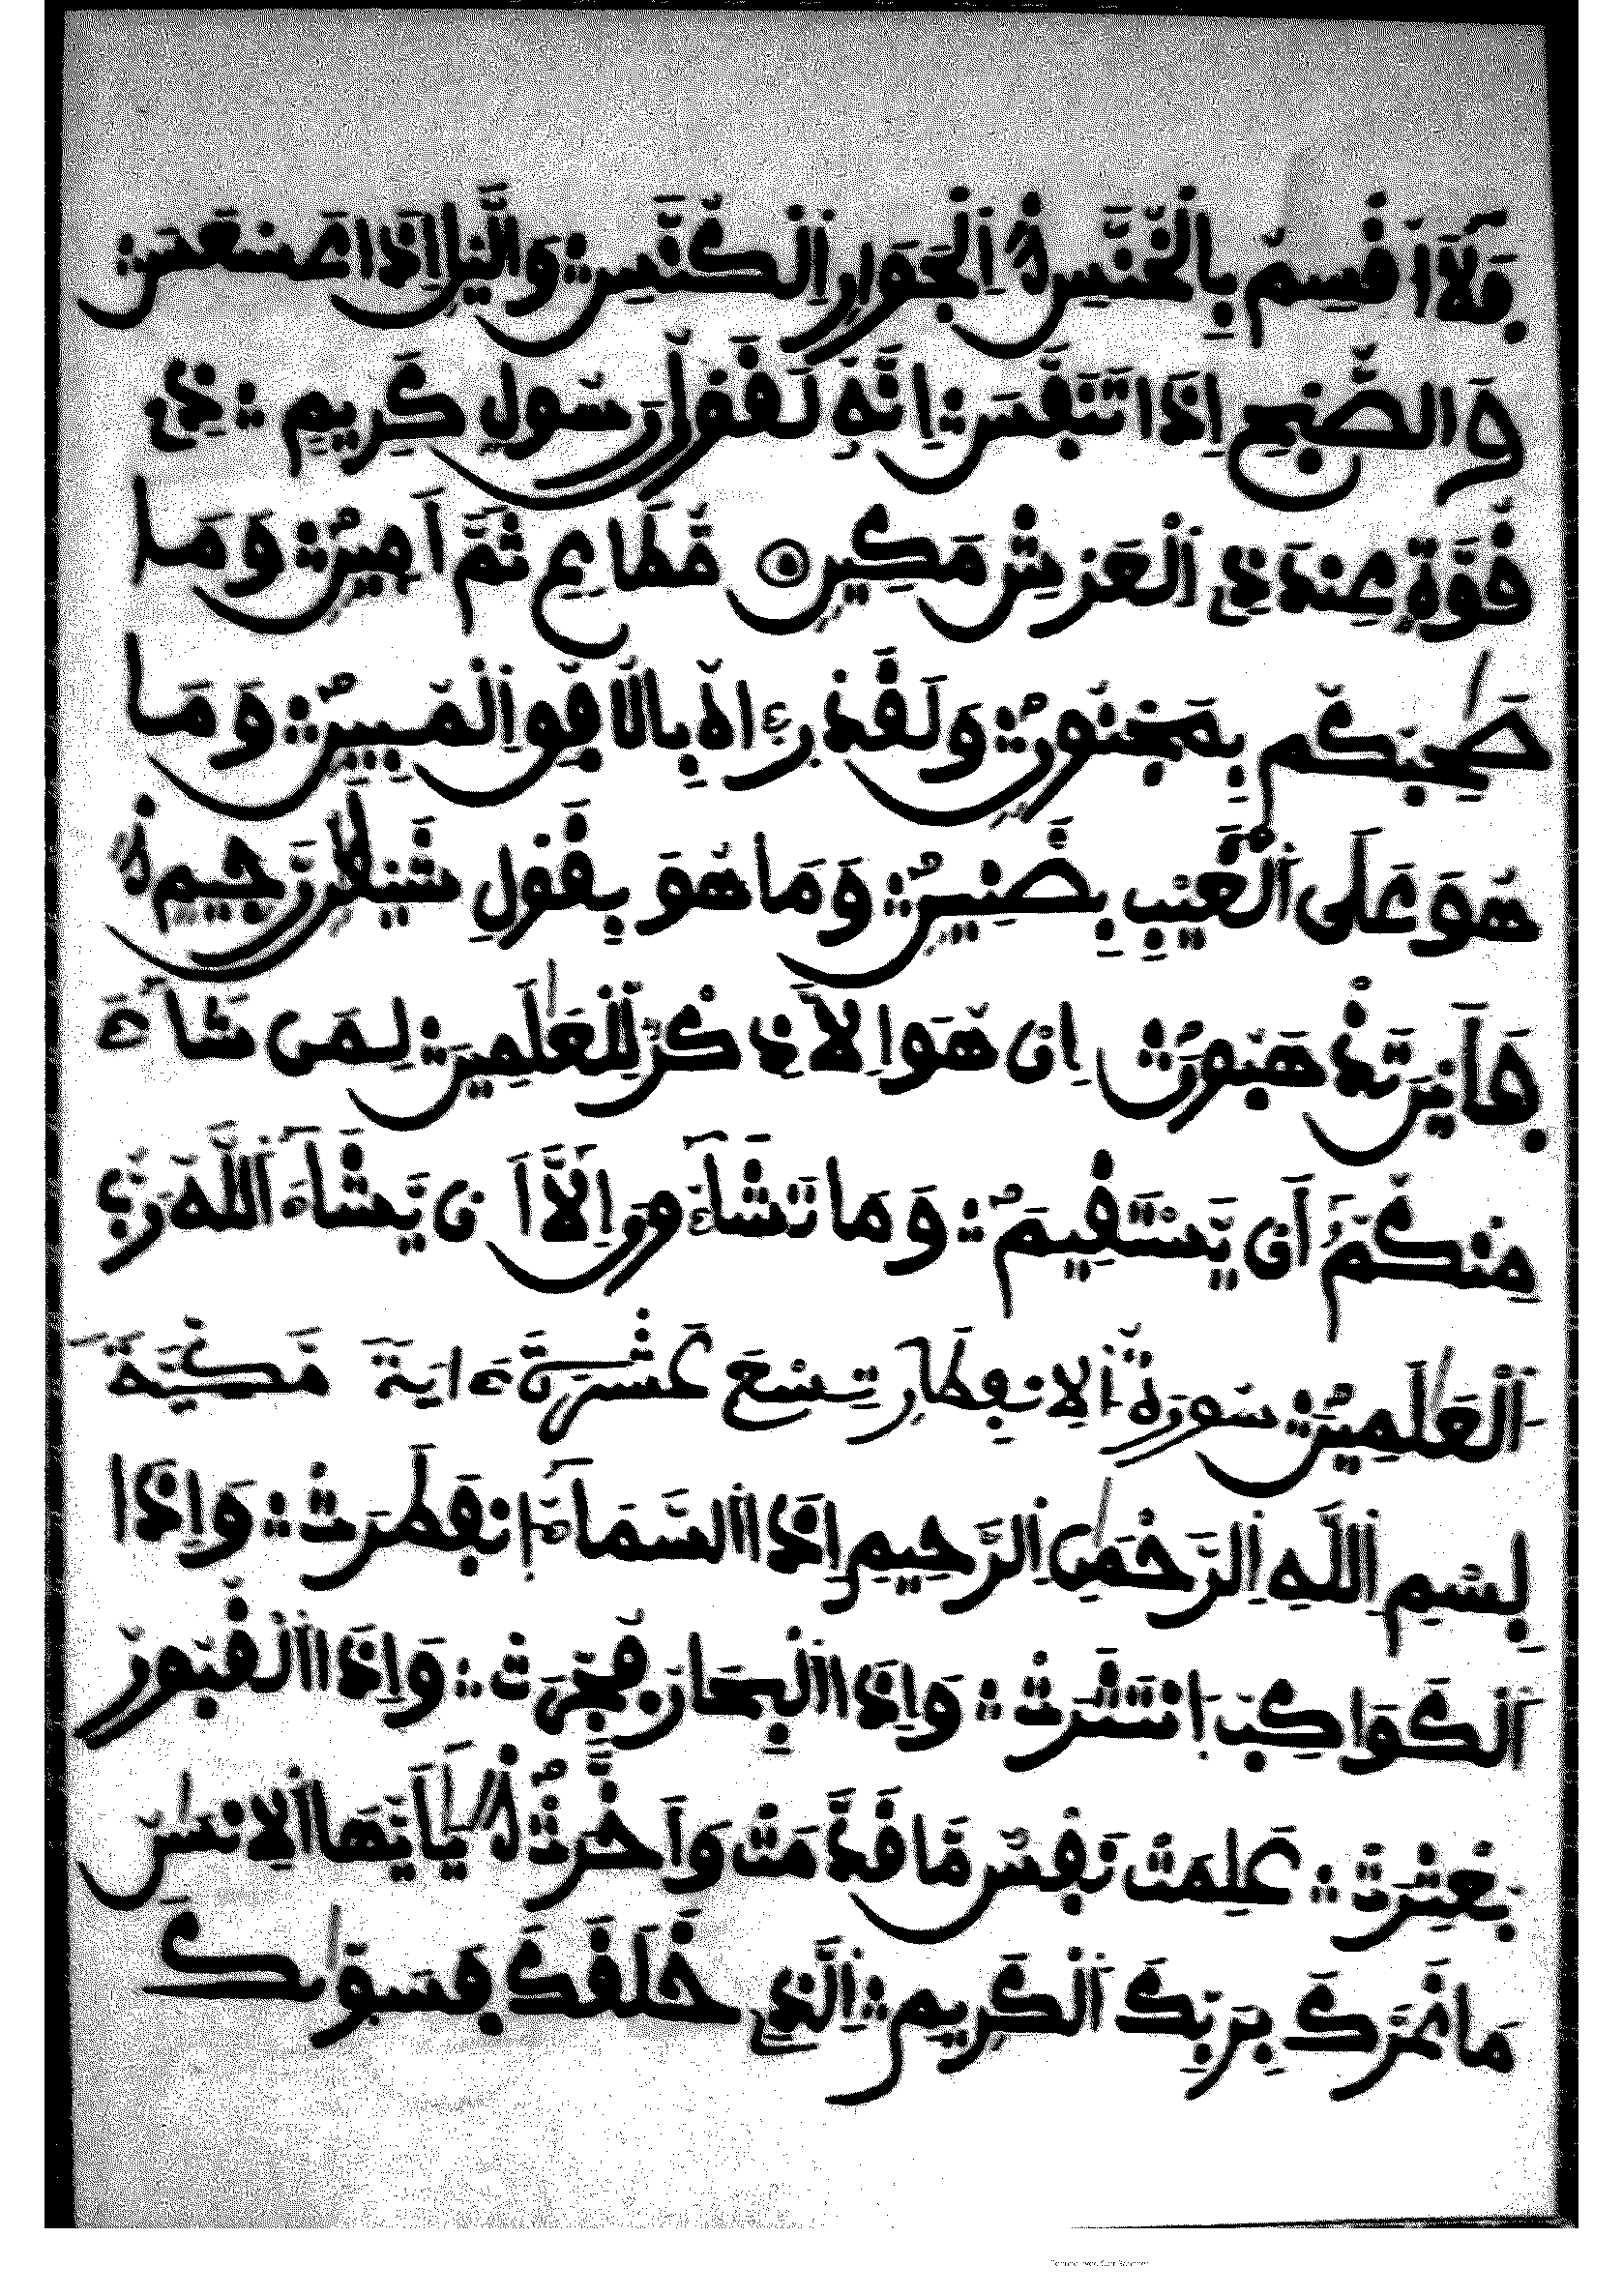 فَلَا أُقْسِمُ بِالْخُنَّسِ اِلْجَوَارِ اِلْكُنَّسِ وَالَّيْلِ إِذَا عَسْعَسَ
وَالصُّبْحِ إِذَا تَنَفَّسَ إِنَّهُ لَقَوْلُ رَسُولٍ كَرِيمٍ ذِي
قُوَّةٍ عِندَ ذِي اِلْعَرْشِ مَكِينٍ مُّطَاعٍ ثَمَّ أَمِينٍ وَمَا
صَٰحِبُكُم بِمَجْنُونٍ وَلَقَدْ رَءَاهُ بِالُافُقِ اِلْمُبِينِ وَمَا
هُوَ عَلَى اَلْغَيْبِ بِضَنِينٍ وَمَا هُوَ بِقَوْلِ شَيْطَٰنٍ رَّجِيمٍ
فَأَيْنَ تَذْهَبُونَ إِنْ هُوَ إِلَّا ذِكْرٌ لِّلْعَٰلَمِينَ لِمَن شَآءَ
مِنكُمُ أَنْ يَّسْتَقِيمَ وَمَا تَشَآءُونَ إِلَّا أَنْ يَّشَآءَ اَللَّهُ رَبُّ
اُلْعَٰلَمِينَ سُورَةُ الِانفِطَارِ تِسْعَ عَشْرَةَ ءَايَةً مَكِّيَّةٌ
بِسْمِ اِللَّهِ اِلرَّحْمَٰنِ اِلرَّحِيمِ إِذَا اَلسَّمَآءُ اُنفَطَرَتْ وَإِذَا
اَلْكَوَاكِبُ اُنتَثَرَتْ وَإِذَا اَلْبِحَارُ فُجِّرَتْ وَإِذَا اَلْقُبُورُ
بُعْثِرَتْ عَلِمَتْ نَفْسٌ مَّا قَدَّمَتْ وَأَخَّرَتْ يَٰأَيُّهَا اَلِانسَٰنُ
مَا غَرَّكَ بِرَبِّكَ اَلْكَرِيمِ اِلَّذِي خَلَقَكَ فَسَوَّىٰكَ